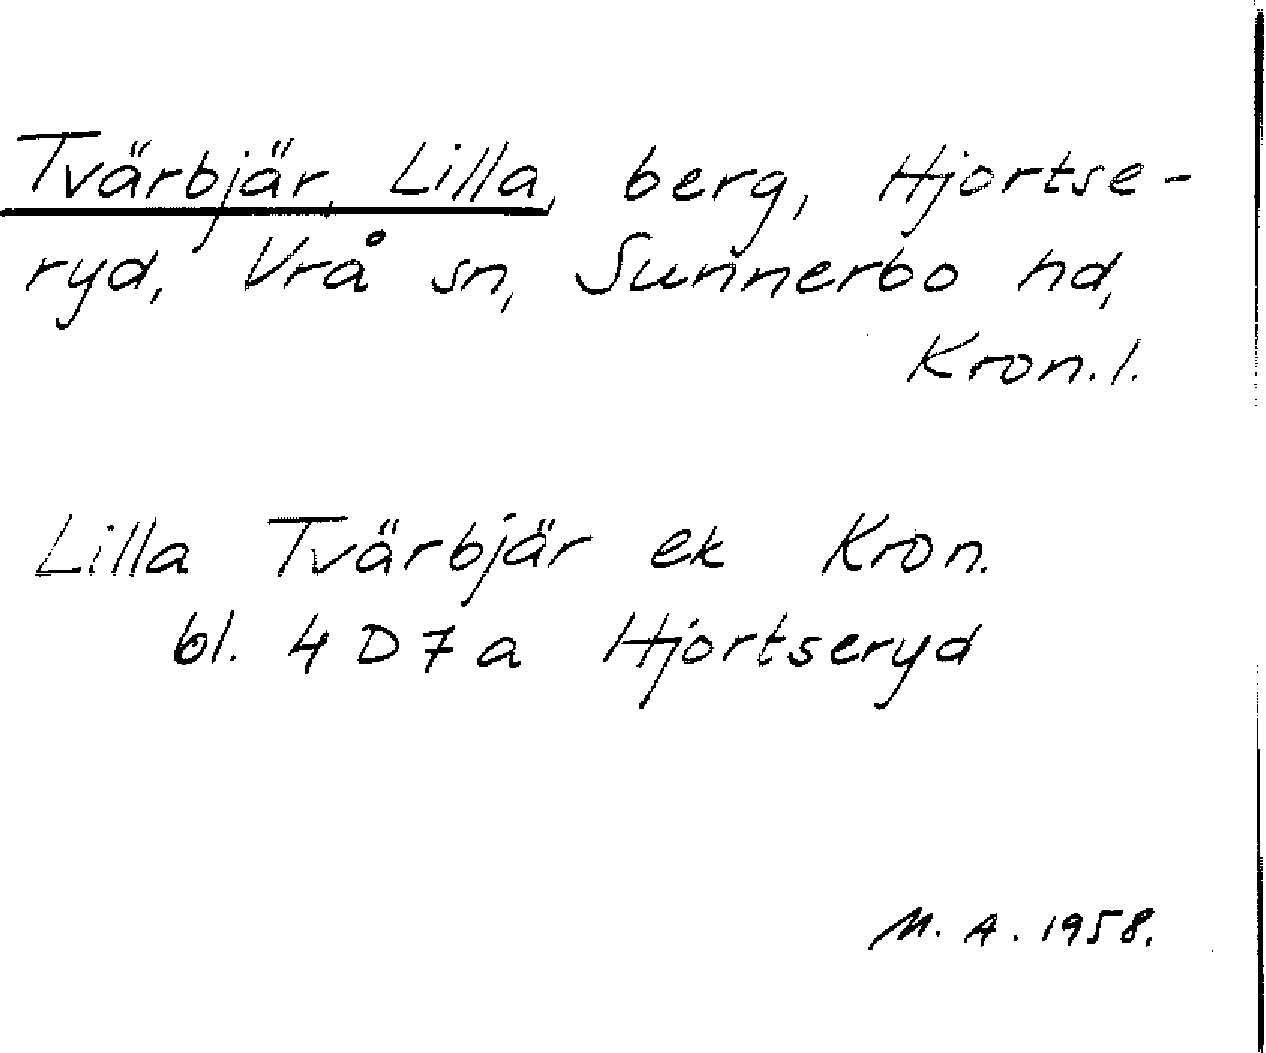 Tvärbjär, Lilla, berg, Hjortse-
ryd, Vrå sn, Sunnerbo hd,
Kron.l.
Lilla Tvärbjär ek Kron.
bl. 4 D 7 a Hjortseryd
M. A. 1958.